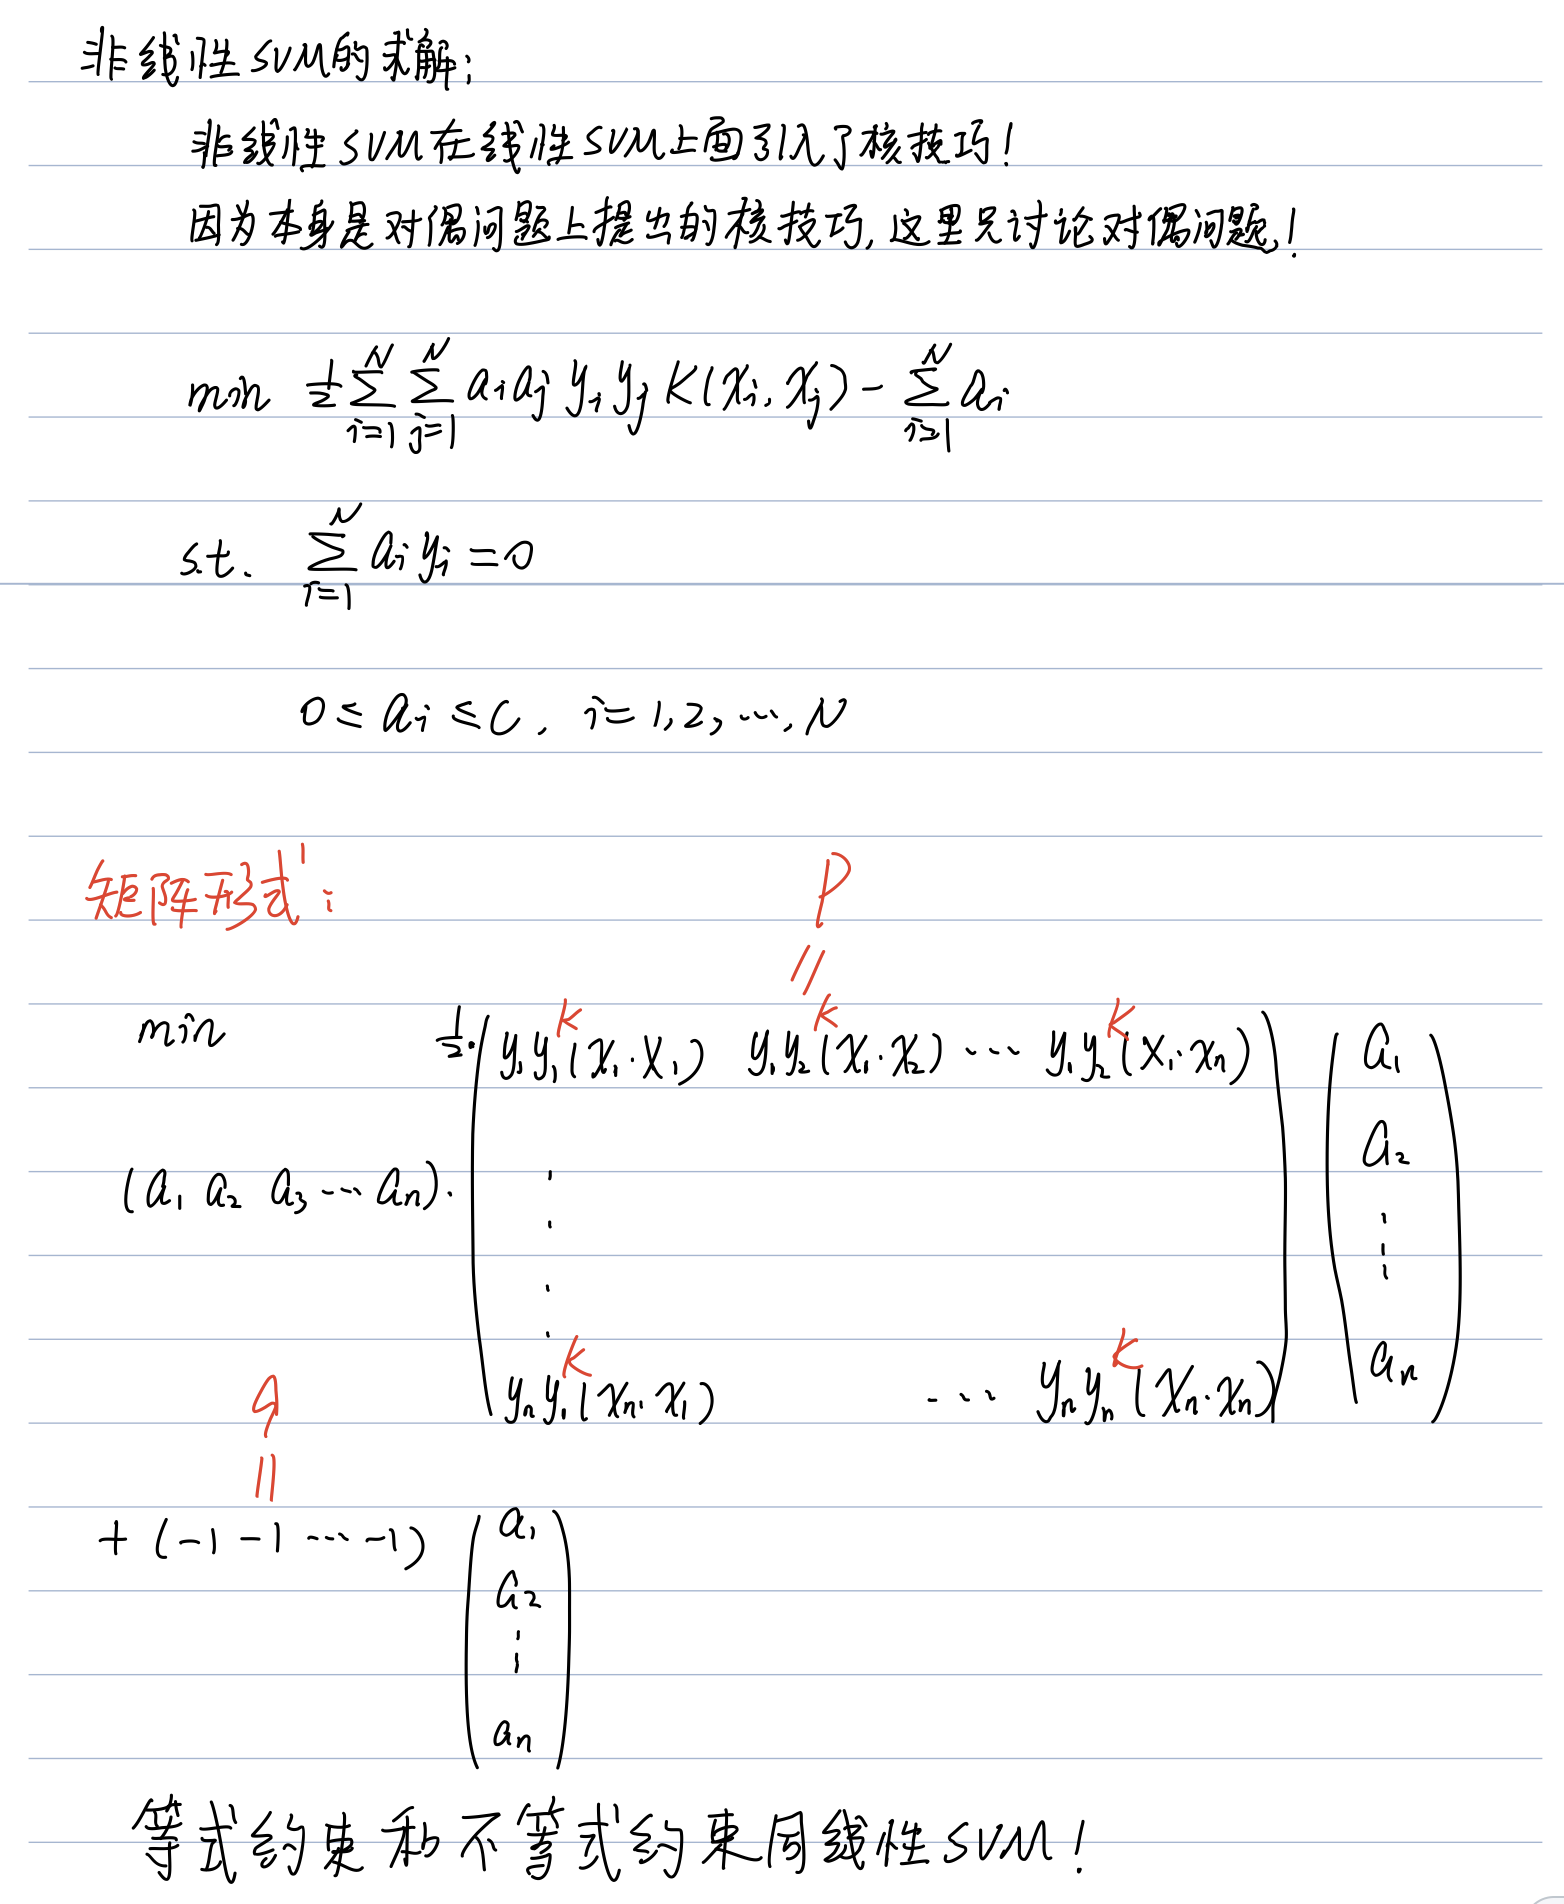 非线性SVM的求解:
非线性SVM在线性SVM上面引入了核技巧!
因为本身是对偶问题上提出的核技巧,这里只讨论对偶问题!
min ½ ∑_{i=1}^{N} ∑_{j=1}^{N} a_i a_j y_i y_j K(x_i, x_j) - ∑_{i=1}^{N} a_i
s.t. ∑_{i=1}^{N} a_i y_i = 0
0 ≤ a_i ≤ C, i=1,2,…,N
矩阵形式:
P
=
min ½·
K K K
y_1y_1(x_1·x_1) y_1y_2(x_1·x_2) … y_1y_2(x_1·x_n) a_1
a_2
(a_1 a_2 a_3 … a_n)·
⋮ ⋮
K K
y_ny_1(x_n·x_1) … y_ny_n(x_n·x_n) a_n
q
=
+ (-1 -1 … -1) a_1
a_2
⋮
a_n
等式约束和不等式约束同线性SVM!